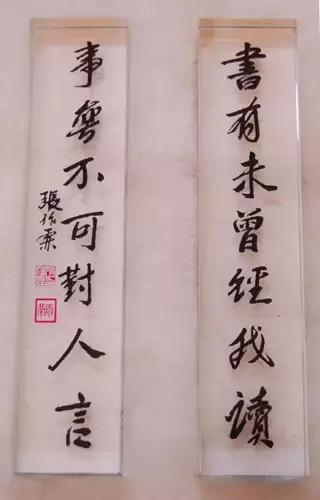 書有未曾經我讀
事無不可對人言
張作霖